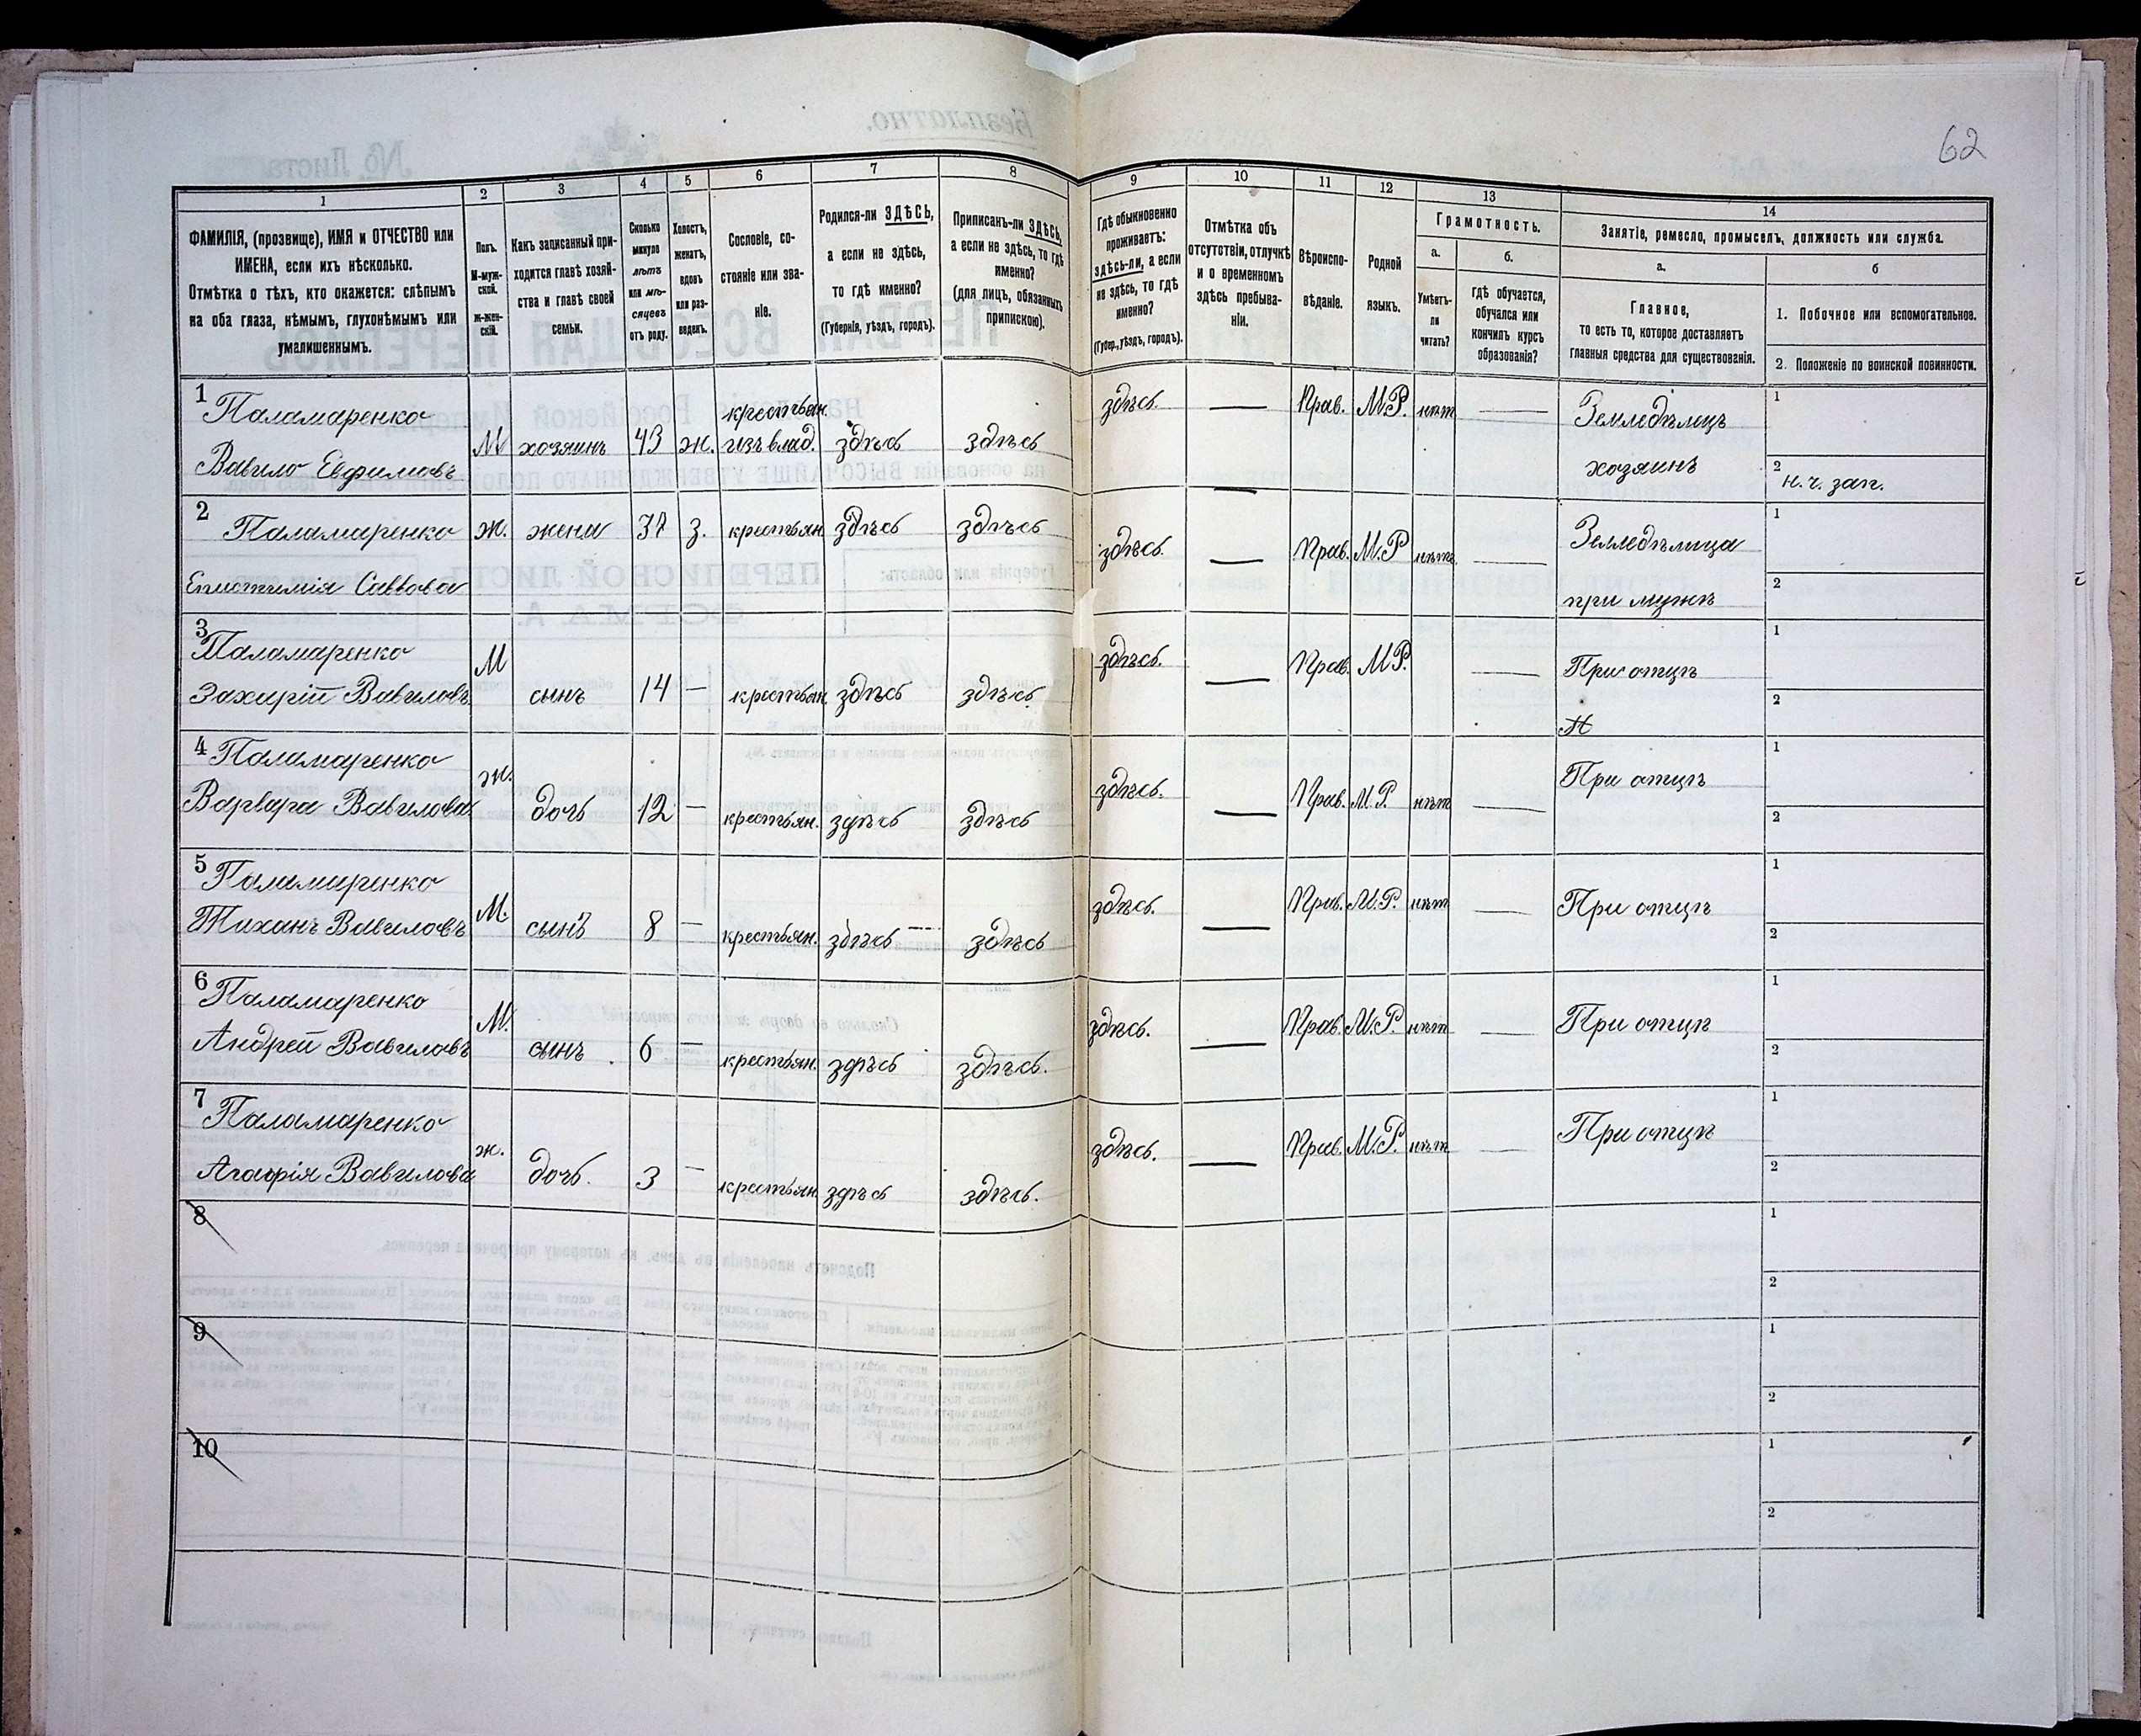 62
1
2
3
4
5
6
7
8
9
10
11
12
13
14
ФАМИЛІЯ, (прозвище), ИМЯ и ОТЧЕСТВО или
ИМЕНА, если ихъ нѣсколько.
Отмѣтка о тѣхъ, кто окажется: слѣпымъ
на оба глаза, нѣмымъ, глухонѣмымъ или
умалишеннымъ.
Полъ.
М-муж-
ской.
ж-жен-
скій.
Какъ записанный при-
ходится главѣ хозяй-
ства и главѣ своей
семьи.
Сколько
минуло
лѣтъ
или мѣ-
сяцевъ
отъ роду.
Холостъ,
женатъ,
вдовъ
или раз-
веденъ.
Сословіе, со-
стояніе или зва-
ніе.
Родился-ли ЗДѢСЬ,
а если не здѣсь,
то гдѣ именно?
(Губернія, уѣздъ, городъ).
Приписанъ-ли ЗДѢСЬ,
а если не здѣсь, то гдѣ
именно?
(для лицъ, обязанныхъ
припискою).
Гдѣ обыкновенно
проживаетъ:
здѣсь-ли, а если
не здѣсь, то гдѣ
именно?
(Губер., уѣздъ, городъ).
Отмѣтка объ
отсутствіи, отлучкѣ
и о временномъ
здѣсь пребыва-
ніи.
Вѣроиспо-
вѣданіе.
Родной
языкъ.
Грамотность.
а.
Умѣетъ-
ли
читать?
б.
гдѣ обучается,
обучался или
кончилъ курсъ
образованія?
Занятіе, ремесло, промыселъ, должность или служба.
а.
Главное,
то есть то, которое доставляетъ
главныя средства для существованія.
б
1. Побочное или вспомогательное.
2. Положеніе по воинской повинности.
1 Паламаренко
Вавило Евфимовъ
М хозяинъ 43 ж.
крестьян.
изъ влад.
здѣсь здѣсь здѣсь. — Прав. М.Р. нѣт —
Земледѣлецъ
хозяинъ
1
2
н.ч. зап.
2 Паламаренко
Епистимія Саввова
ж. жена 37 з. крестьян здѣсь здѣсь здѣсь. — Прав. М.Р нѣтъ —
Земледѣлица
при мужѣ
1
2
3 Паламаренко
Захарій Вавиловъ
М сынъ 14 — крестьян. здѣсь здѣсь здѣсь. — Прав. М.Р. —
При отцѣ
1
2
4 Паламаренко
Варвара Вавилова
ж. дочь 12 — крестьян. здѣсь здѣсь здѣсь. — Прав. М.Р. нѣт —
При отцѣ
1
2
5 Паламаренко
Тиханъ Вавиловъ
М. сынъ 8 — крестьян. здѣсь здѣсь здѣсь. — Прав. М.Р. нѣт —
При отцѣ
1
2
6 Паламаренко
Андрей Вавиловъ
М. сынъ 6 — крестьян. здѣсь здѣсь. здѣсь. — Прав. М.Р. нѣт —
При отцѣ
1
2
7 Паламаренко
Агафія Вавилова
ж. дочь. 3 — крестьян. здѣсь здѣсь. здѣсь. — Прав. М.Р. нѣт —
При отцѣ
1
2
8
1
2
9
1
2
10
1
2